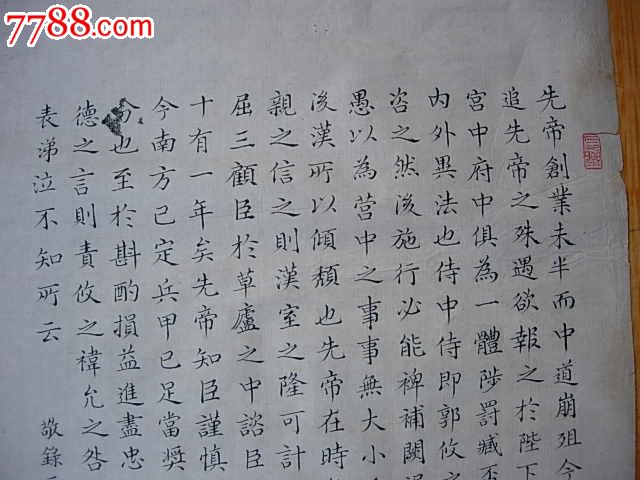 7788.com
中国收藏热线
先帝創業未半而中道崩殂今
追先帝之殊遇欲報之於陛下
宮中府中俱為一體陟罰臧否
內外異法也侍中侍郎郭攸之
咨之然後施行必能裨補闕
愚以為營中之事事無大小
後漢所以傾頹也先帝在時
親之信之則漢室之隆可計
屈三顧臣於草廬之中諮臣
十有一年矣先帝知臣謹慎
今南方已定兵甲已足當獎
分也至於斟酌損益進盡忠
德之言則責攸之禕允之咎
表涕泣不知所云 敬錄